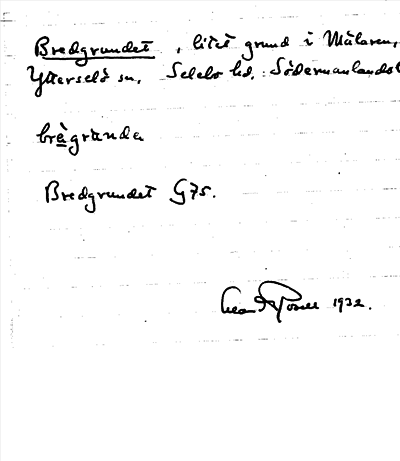 Bredgrundet, litet grund i Mälaren,
Ytterselö sn, Selebo hd, Södermanlands l
brègrundə
Bredgrundet G75.
1932.